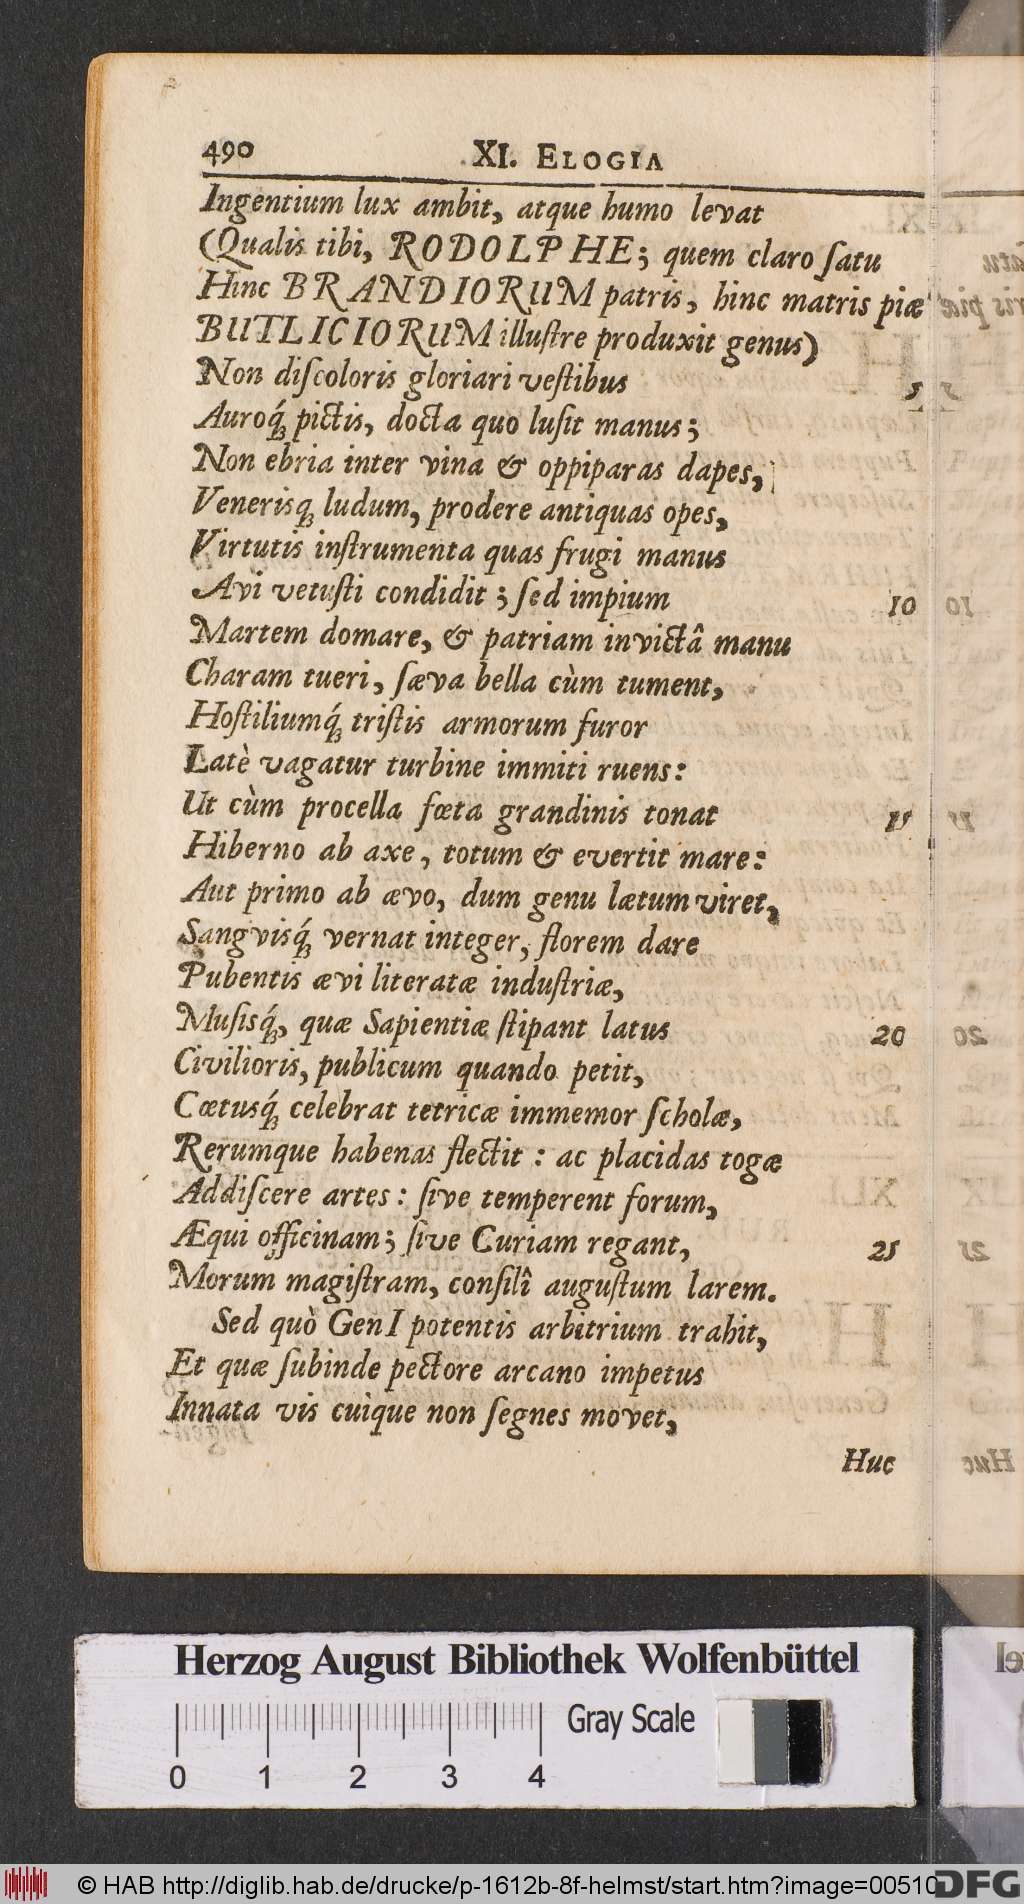 490 XI. ELOGIA
Ingentium lux ambit, atque humo levat
(Qualis tibi, RODOLPHE; quem claro ſatu
Hinc BRANDIORUM patris, hinc matris piæ
BUTLICIORUM illuſtre produxit genus)
Non diſcoloris gloriari veſtibus 5
Auroq́; pictis, docta quo luſit manus;
Non ebria inter vina & oppiparas dapes,
Venerisq; ludum, prodere antiquas opes,
Virtutis inſtrumenta quas frugi manus
Avi vetuſti condidit; ſed impium 10
Martem domare, & patriam invictâ manu
Charam tueri, ſæva bella cùm tument,
Hoſtiliumq́; triſtis armorum furor
Latè vagatur turbine immiti ruens:
Ut cùm procella fœta grandinis tonat 15
Hiberno ab axe, totum & evertit mare:
Aut primo ab ævo, dum genu lætum viret,
Sangvisq́; vernat integer, florem dare
Pubentis ævi literatæ induſtriæ,
Musisq́;, quæ Sapientiæ ſtipant latus 20
Civilioris, publicum quando petit,
Cœtusq́; celebrat tetricæ immemor ſcholæ,
Rerumque habenas flectit: ac placidas togæ
Addiſcere artes: ſive temperent forum,
Æqui officinam; ſive Curiam regant, 25
Morum magiſtram, conſilî auguſtum larem.
Sed quò GenI potentis arbitrium trahit,
Et quæ ſubinde pectore arcano impetus
Innata vis cuique non ſegnes movet,
Huc
Herzog August Bibliothek Wolfenbüttel
Gray Scale
0 1 2 3 4
© HAB http://diglib.hab.de/drucke/p-1612b-8f-helmst/start.htm?image=00510
DFG